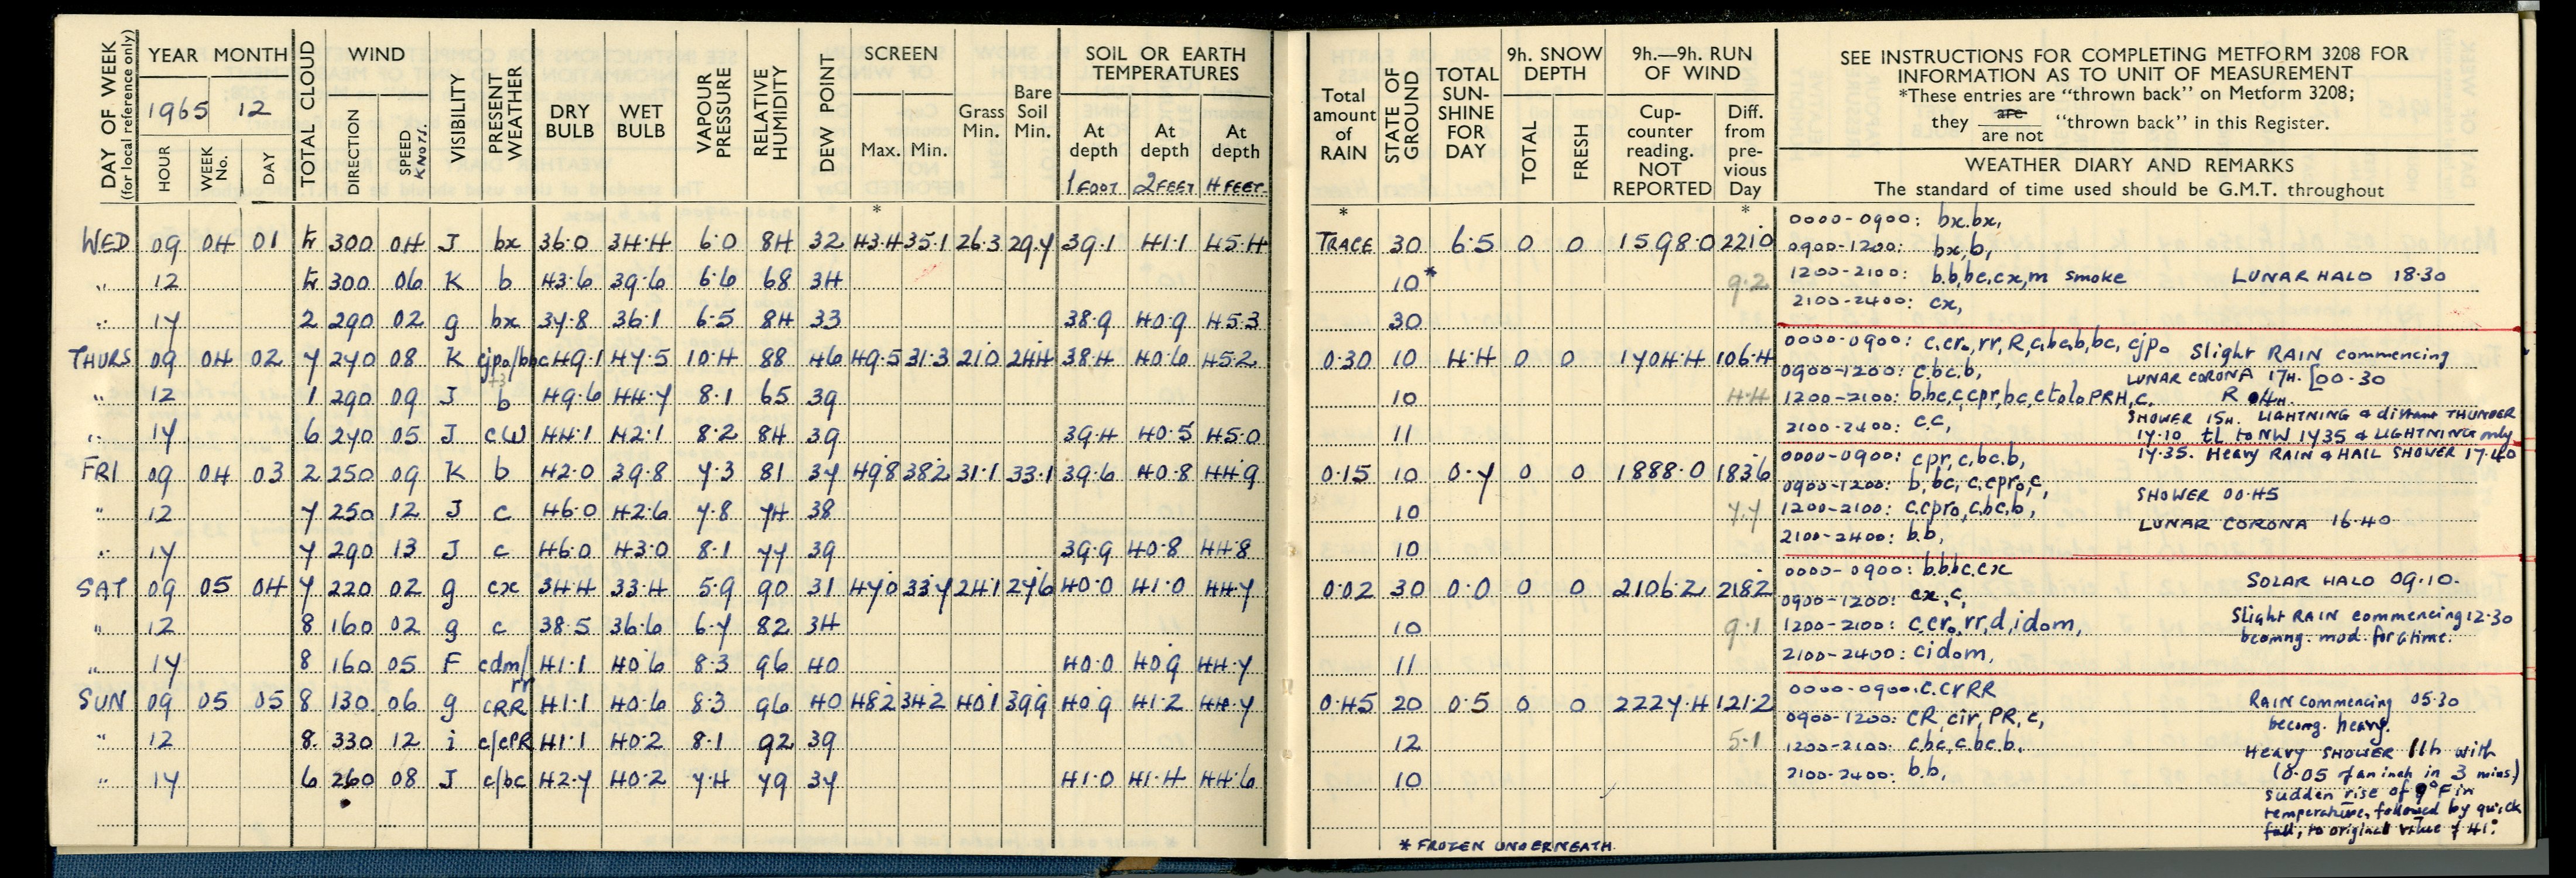 DAY OF WEEK
(for local reference only)
YEAR MONTH
1965 12
HOUR
WEEK No.
DAY
TOTAL CLOUD
WIND
DIRECTION
SPEED KNOTS.
VISIBILITY
PRESENT WEATHER
DRY BULB
WET BULB
VAPOUR PRESSURE
RELATIVE HUMIDITY
DEW POINT
SCREEN
Max. Min.
Grass Min.
Bare Soil Min.
SOIL OR EARTH TEMPERATURES
At depth 1 FOOT
At depth 2 FEET
At depth 4 FEET
Total amount of RAIN
STATE OF GROUND
TOTAL SUN-SHINE FOR DAY
9h. SNOW DEPTH
TOTAL
FRESH
9h.—9h. RUN OF WIND
Cup-counter reading. NOT REPORTED
Diff. from pre-vious Day
SEE INSTRUCTIONS FOR COMPLETING METFORM 3208 FOR
INFORMATION AS TO UNIT OF MEASUREMENT
*These entries are "thrown back" on Metform 3208;
they are / are not "thrown back" in this Register.
WEATHER DIARY AND REMARKS
The standard of time used should be G.M.T. throughout
* * *
WED 09 04 01 tr 300 04 J bx 36.0 34.4 6.0 84 32 43.4 35.1 26.3 29.7 39.1 41.1 45.4 TRACE 30 6.5 0 0 1598.0 221.0
" 12 tr 300 06 K b 43.6 39.6 6.6 68 34 10* 9.2
" 17 2 290 02 g bx 37.8 36.1 6.5 84 33 38.9 40.9 45.3 30
THURS 09 04 02 7 240 08 K cjpo/bbc 49.1 47.5 10.4 88 46 49.5 31.3 21.0 24.4 38.4 40.6 45.2 0.30 10 4.4 0 0 1704.4 106.4
" 12 1 290 09 J b 49.6 44.7 8.1 65 39 10 4.4
" 17 6 240 05 J cW 44.1 42.1 8.2 84 39 39.4 40.5 45.0 11
FRI 09 04 03 2 250 09 K b 42.0 39.8 7.3 81 37 49.8 38.2 31.1 33.1 39.6 40.8 44.9 0.15 10 0.7 0 0 1888.0 183.6
" 12 7 250 12 J c 46.0 42.6 7.8 74 38 10 7.7
" 17 7 290 13 J c 46.0 43.0 8.1 77 39 39.9 40.8 44.8 10
SAT 09 05 04 7 220 02 g cx 34.4 33.4 5.9 90 31 47.0 33.7 24.1 27.6 40.0 41.0 44.7 0.02 30 0.0 0 0 2106.2 218.2
" 12 8 160 02 g c 38.5 36.6 6.7 82 34 10 9.1
" 17 8 160 05 F cdm/rr 41.1 40.6 8.3 96 40 40.0 40.9 44.7 11
SUN 09 05 05 8 130 06 g cRR 41.1 40.6 8.3 96 40 48.2 34.2 40.1 39.9 40.9 41.2 44.7 0.45 20 0.5 0 0 2227.4 121.2
" 12 8 330 12 i c/cPR 41.1 40.2 8.1 92 39 12 5.1
" 17 6 260 08 J c/bc 42.7 40.2 7.4 79 37 41.0 41.4 44.6 10
0000-0900: bx.bx,
0900-1200: bx,b,
1200-2100: b.b,bc,cx,m smoke LUNAR HALO 18.30
2100-2400: cx,
0000-0900: c,cro,rr,R,c,bc,b,bc, cjpo Slight RAIN commencing [00.30
0900-1200: c.bc.b, LUNAR CORONA 17H.
1200-2100: b,bc,c,cpr,bc,ctoloPRH,c, R 04H.
2100-2400: c.c, SHOWER 15H. LIGHTNING & distant THUNDER
17.10 tL to NW 1735 & LIGHTNING only
17.35. Heavy RAIN & HAIL SHOWER 17.40
0000-0900: cpr,c,bc.b,
0900-1200: b,bc, c,cpro,c, SHOWER 00.45
1200-2100: c.cpro,c,bc,b, LUNAR CORONA 16.40
2100-2400: b.b,
0000-0900: b.b.bc.cx SOLAR HALO 09.10.
0900-1200: cx,c,
1200-2100: c.cro,rr,d,idom, Slight RAIN commencing 12.30
becomng. mod. for a time.
2100-2400: cidom,
0000-0900: c.crRR RAIN commencing 05.30
becomg. heavy.
0900-1200: CR,cir,PR,c,
1200-2100: c.bc,c.bc.b. Heavy SHOWER 11h with
2100-2400: b.b, (0.05 of an inch in 3 mins)
sudden rise of 9°F in
temperature, followed by quick
fall, to original value of 41°
* FROZEN UNDERNEATH.